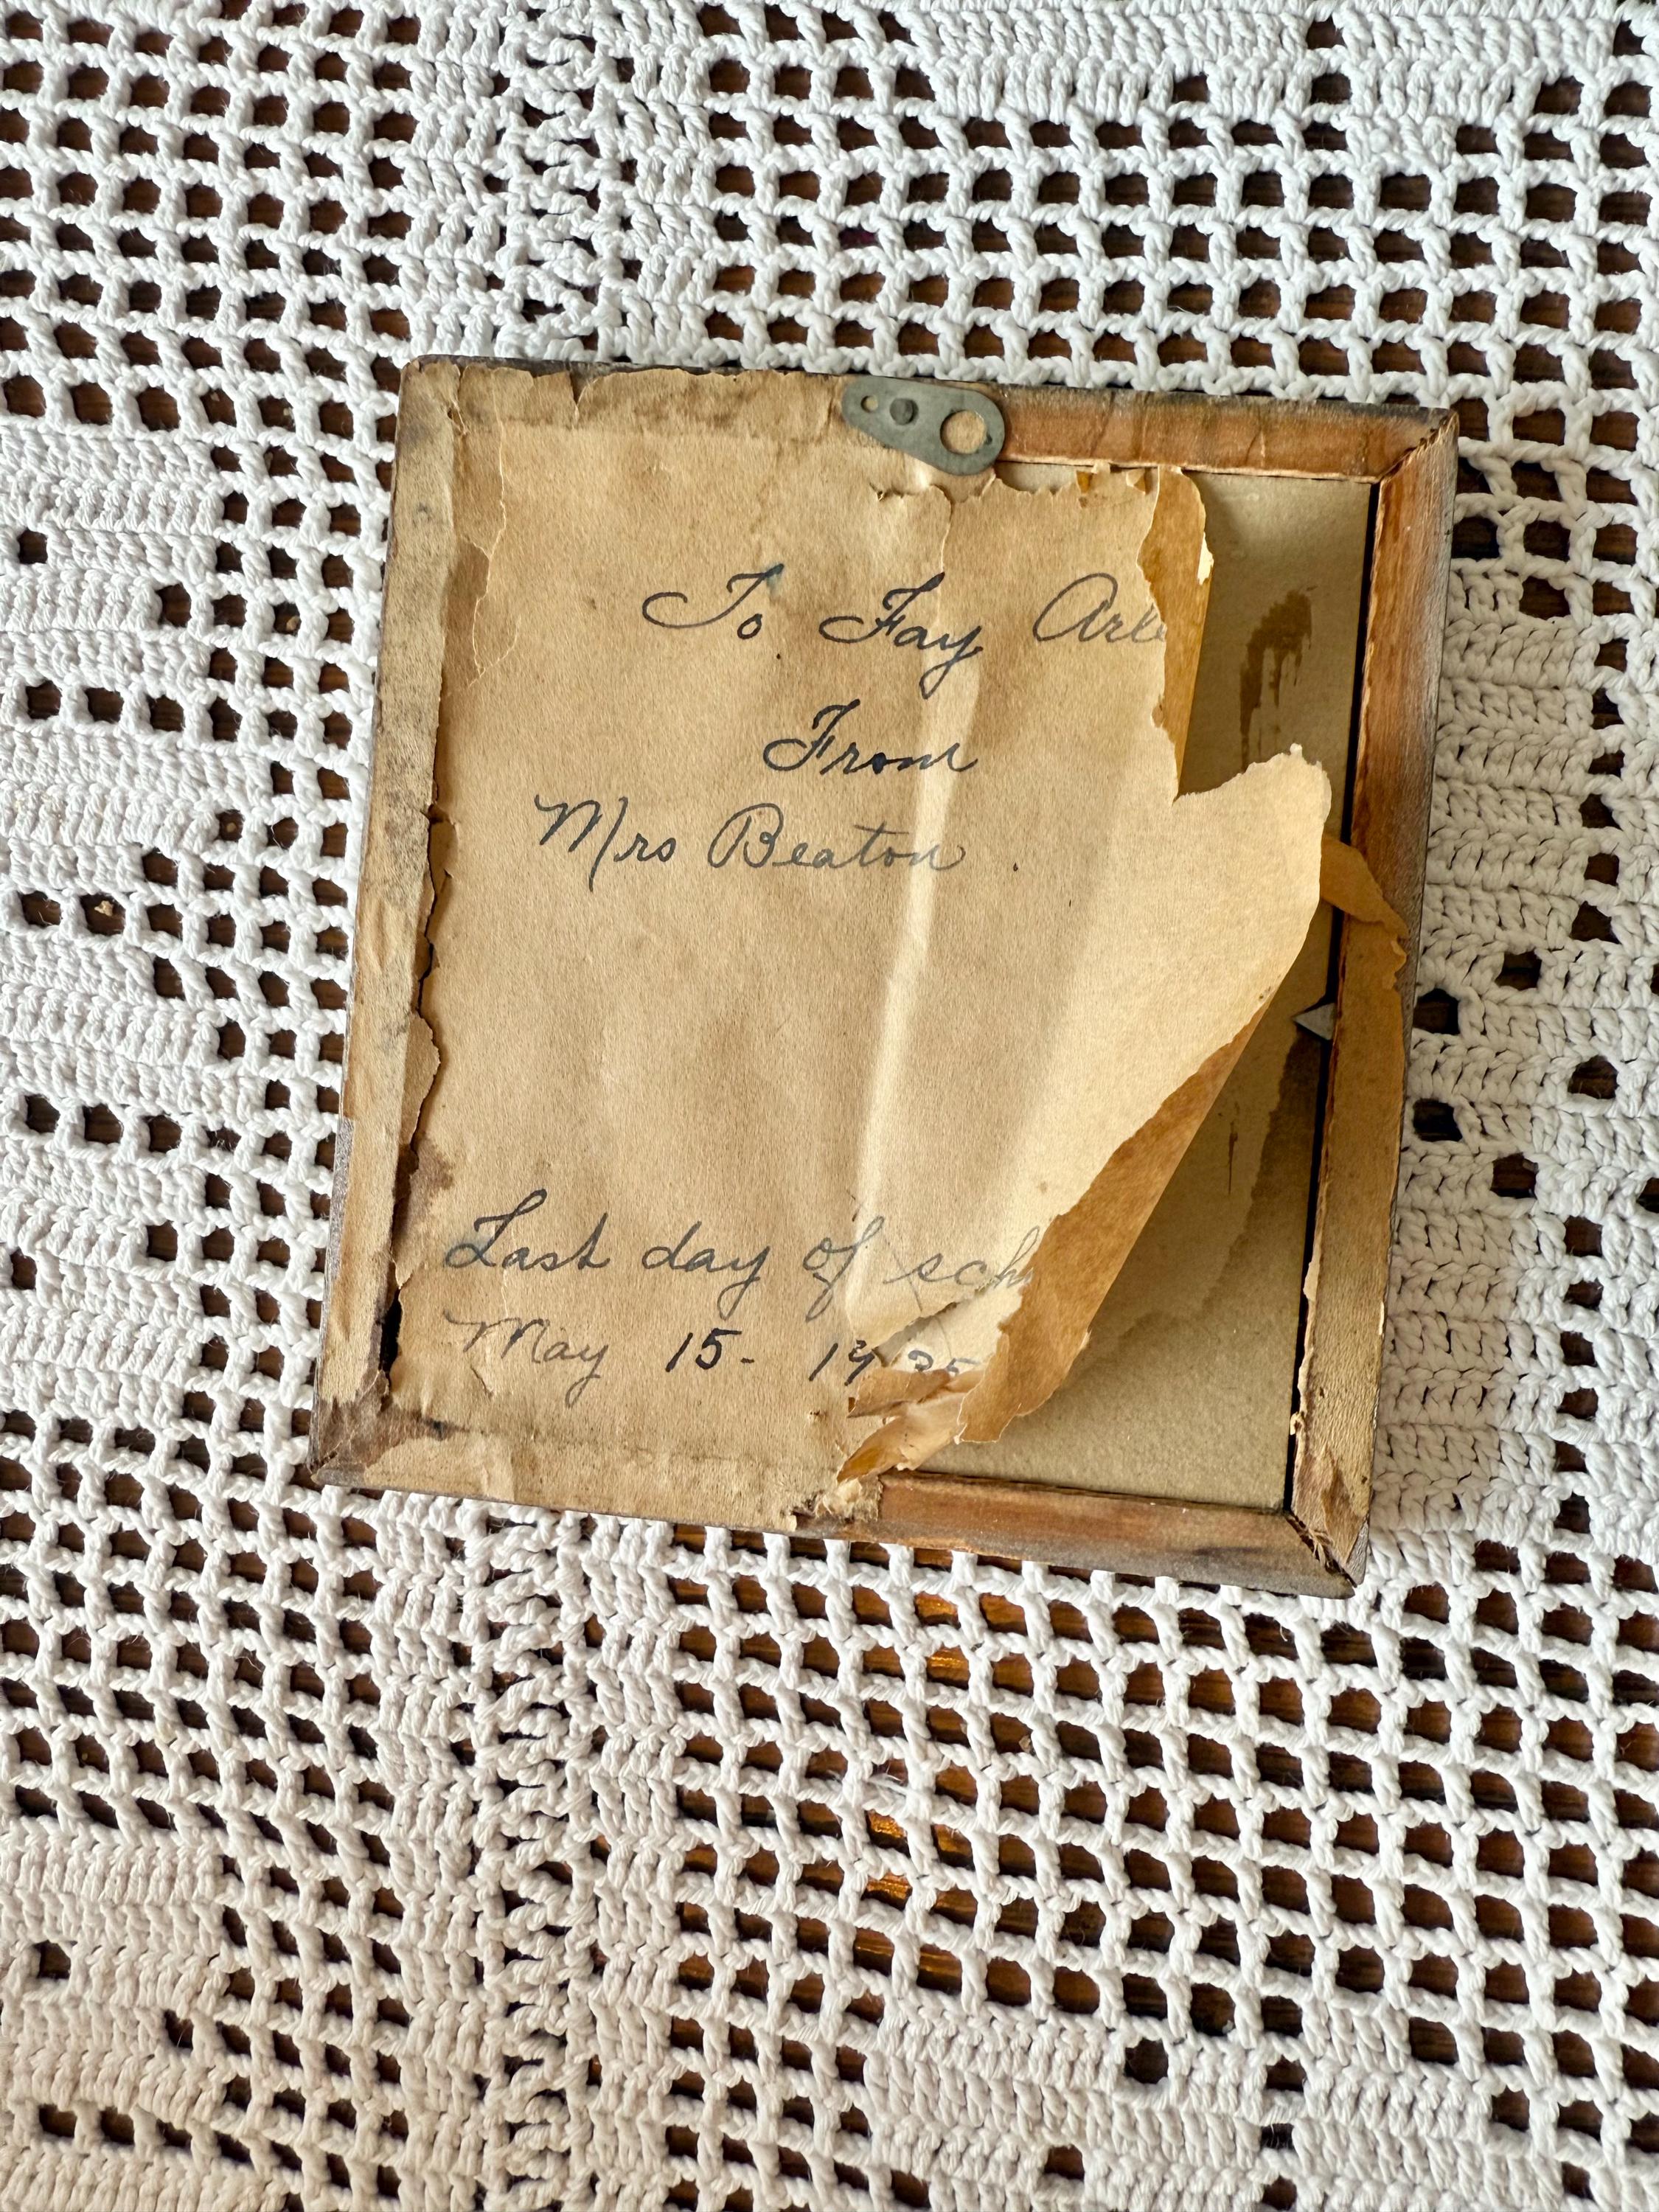 To Fay Arle
From
Mrs Beaton
Last day of sch
May 15. 1935